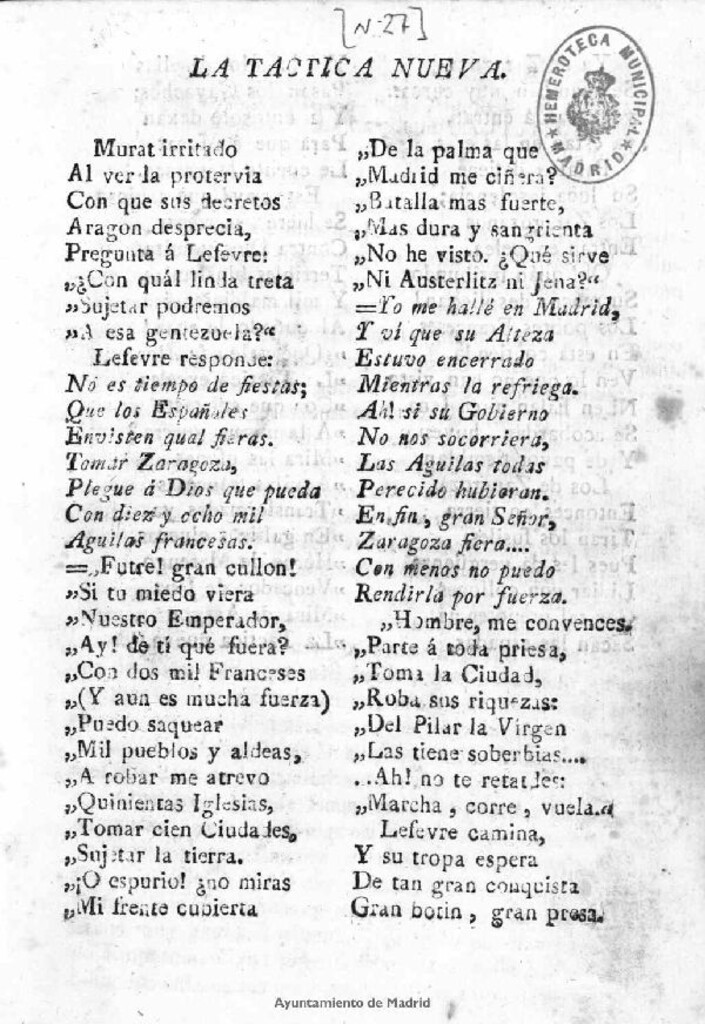 [N-27]
LA TACTICA NUEVA.
HEMEROTECA MUNICIPAL
MADRID
Murat irritado
Al ver la protervia
Con que sus decretos
Aragon desprecia,
Pregunta á Lefevre:
„¿Con quál linda treta
„Sujetar podremos
„A esa gentezuela?“
Lefevre responde:
No es tiempo de fiestas;
Que los Españoles
Envisten qual fieras.
Tomar Zaragoza,
Plegue á Dios que pueda
Con diez y ocho mil
Aguilas francesas.
=„Futre! gran cullon!
„Si tu miedo viera
„Nuestro Emperador,
„Ay! de ti qué fuera?
„Con dos mil Franceses
„(Y aun es mucha fuerza)
„Puedo saquear
„Mil pueblos y aldeas,
„A robar me atrevo
„Quinientas Iglesias,
„Tomar cien Ciudades,
„Sujetar la tierra.
„¡O espurio! ¿no miras
„Mi frente cubierta
„De la palma que
„Madrid me ciñera?
„Batalla mas fuerte,
„Mas dura y sangrienta
„No he visto. ¿Qué sirve
„Ni Austerlitz ni Jena?“
=Yo me hallé en Madrid,
Y ví que su Alteza
Estuvo encerrado
Mientras la refriega.
Ah! si su Gobierno
No nos socorriera,
Las Aguilas todas
Perecido hubieran.
En fin, gran Señor,
Zaragoza fiera....
Con menos no puedo
Rendirla por fuerza.
„Hombre, me convences.
„Parte á toda priesa,
„Toma la Ciudad,
„Roba sus riquezas:
„Del Pilar la Virgen
„Las tiene soberbias....
...Ah! no te retardes:
„Marcha, corre, vuela.“
Lefevre camina,
Y su tropa espera
De tan gran conquista
Gran botin, gran presa.
Ayuntamiento de Madrid